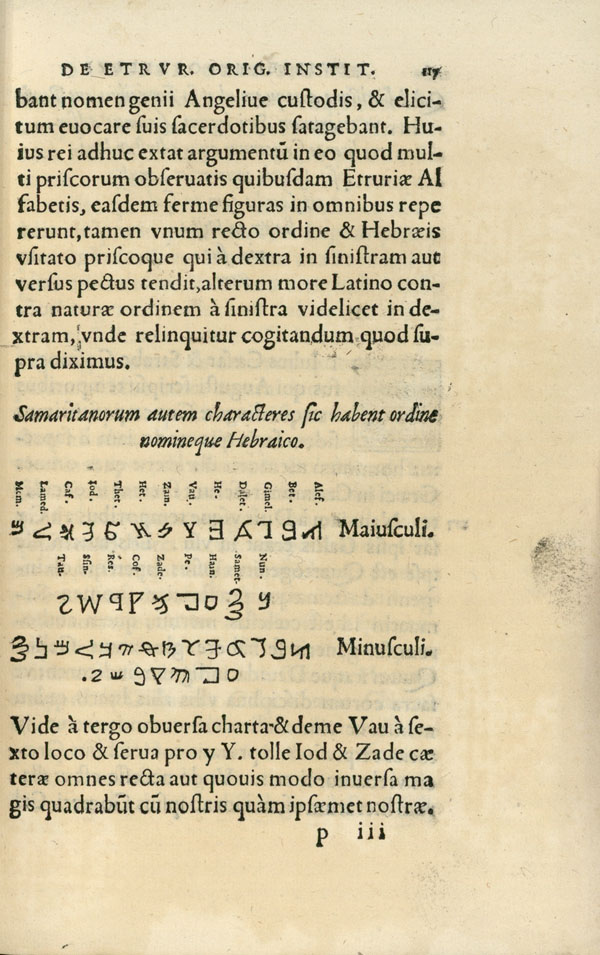 DE ETRVR. ORIG. INSTIT. 117
bant nomen genii Angeliue cuſtodis, & elici-
tum euocare ſuis ſacerdotibus ſatagebant. Hu-
ius rei adhuc extat argumentũ in eo quod mul-
ti priſcorum obſeruatis quibuſdam Etruriæ Al
fabetis, eaſdem ferme figuras in omnibus repe
rerunt, tamen vnum recto ordine & Hebræis
vſitato priſcoque qui à dextra in ſiniſtram aut
verſus pectus tendit, alterum more Latino con-
tra naturæ ordinem à ſiniſtra videlicet in de-
xtram, vnde relinquitur cogitandum quod ſu-
pra diximus.
Samaritanorum autem characteres ſic habent ordine
nomineque Hebraico.
Mem. Lamed. Caf. Iod. Thet. Het. Zain. Vau. He. Dalet. Gimel. Bet. Alef.
Maiuſculi.
Tau. Sſin. Res. Cof. Zade. Pe. Hain. Samet. Nun.
Minuſculi.
Vide à tergo obuerſa charta & deme Vau à ſe-
xto loco & ſerua pro y Y. tolle Iod & Zade cæ
teræ omnes recta aut quouis modo inuerſa ma
gis quadrabũt cũ noſtris quàm ipſæmet noſtræ.
p iii